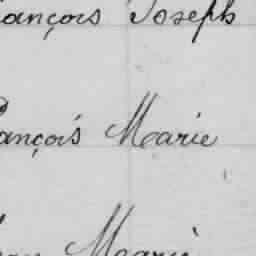 ançois Joseph
ançois Marie
Marie